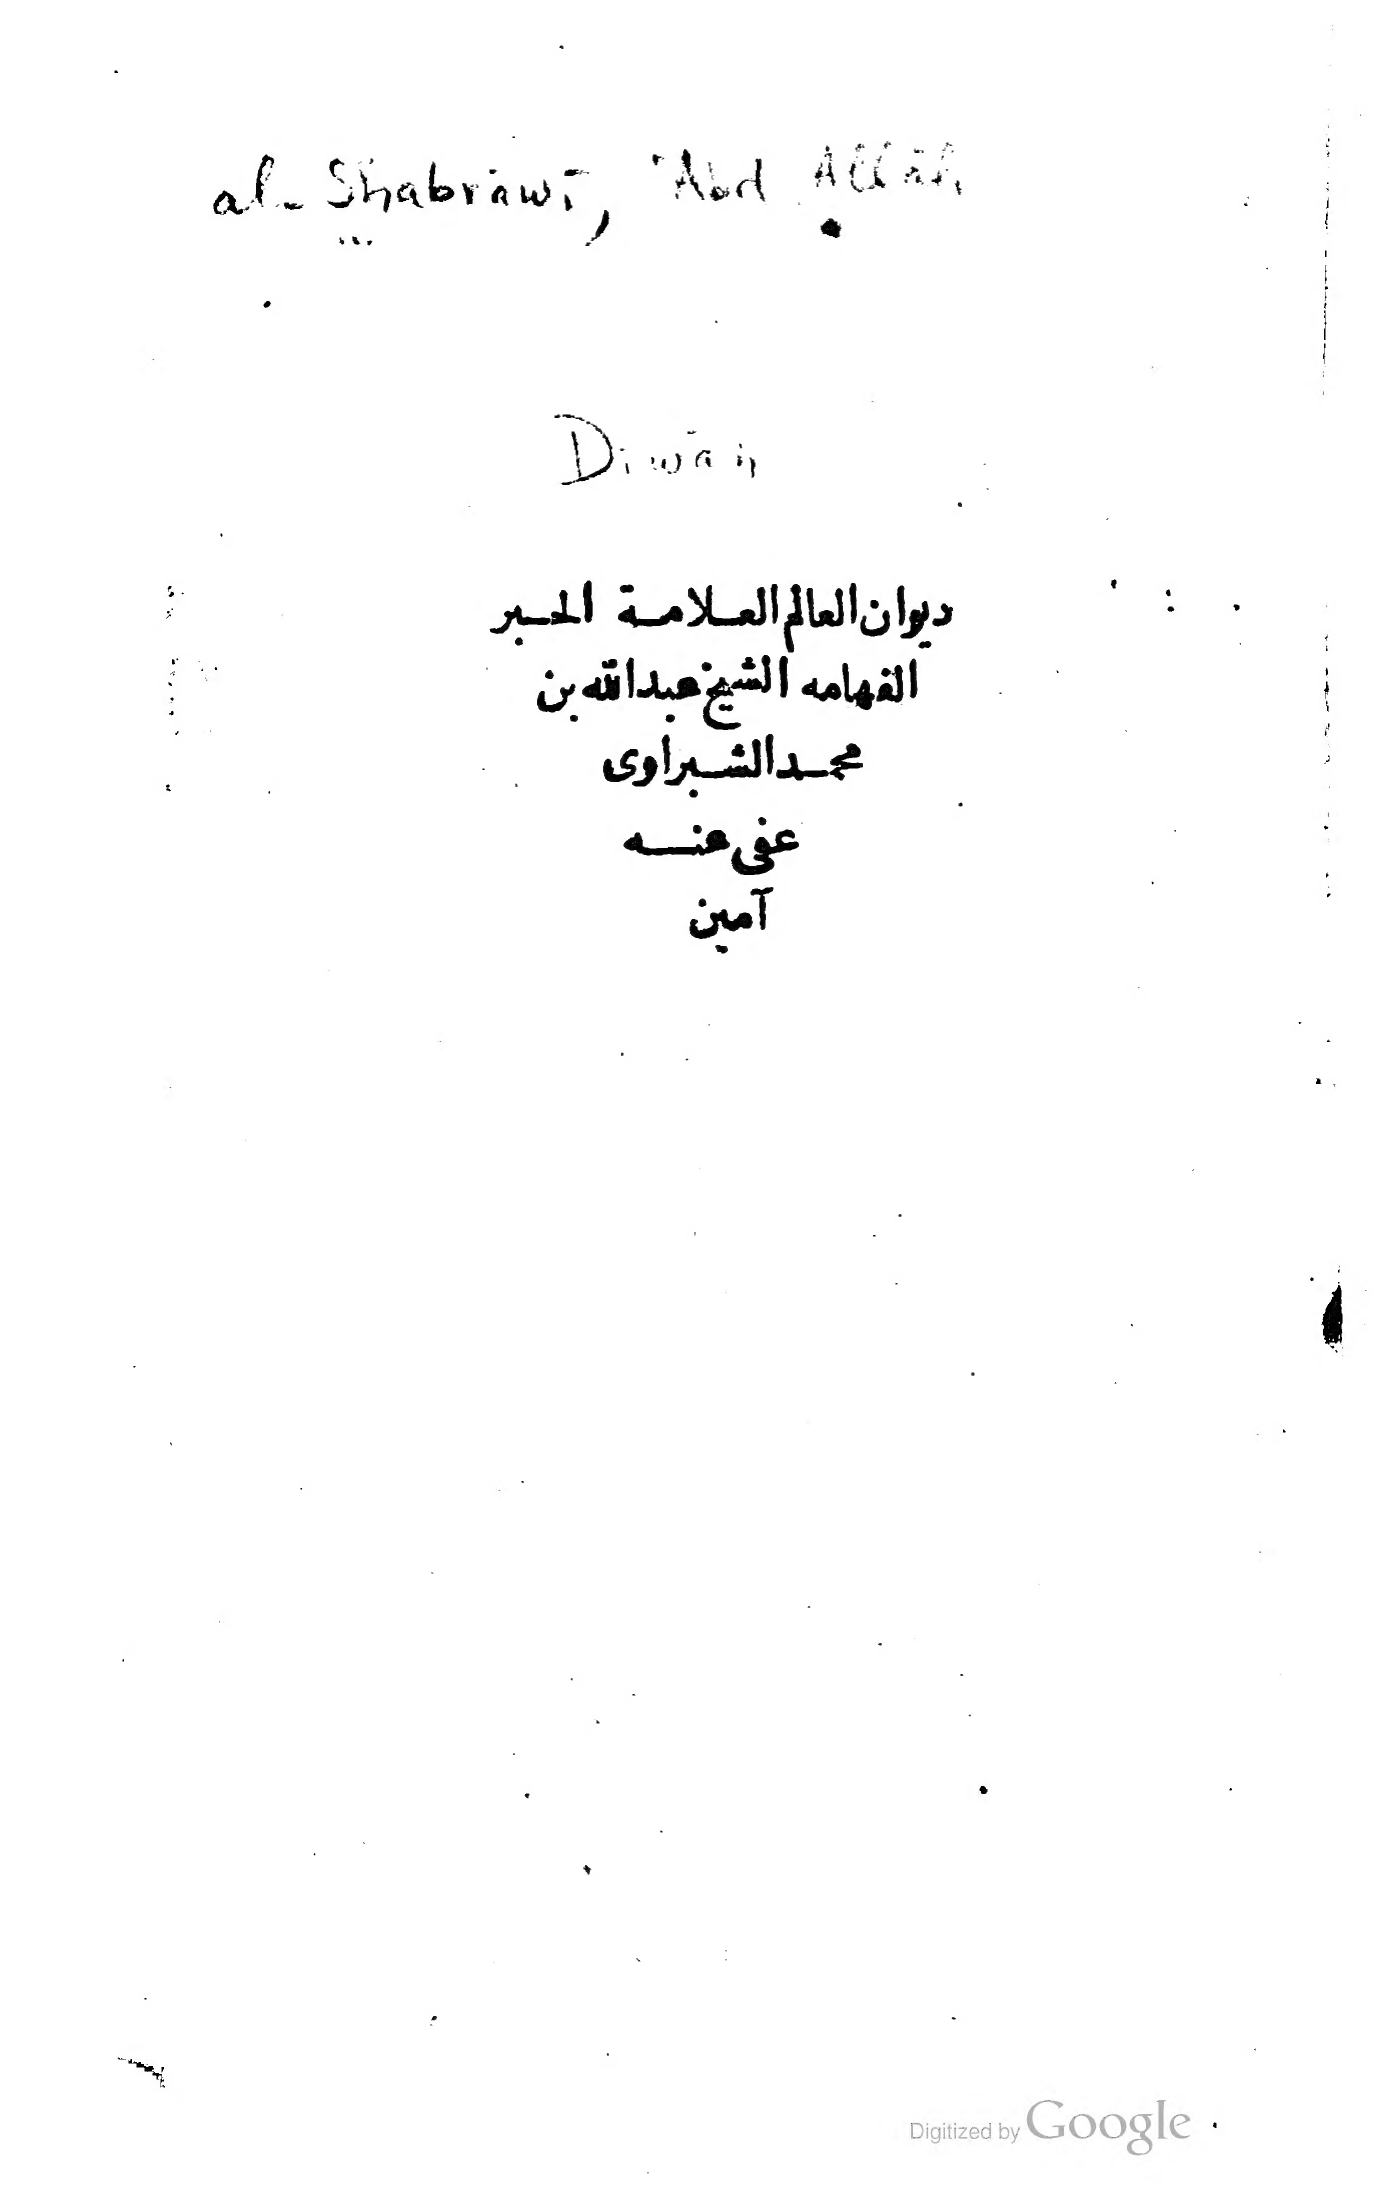 al-Shabrāwī, ʿAbd Allāh
Dīwān
ديوان العالم العلامة الحبر
الفهامه الشيخ عبد الله بن
محمد الشبراوى
عفى عنه
آمين
Digitized by Google